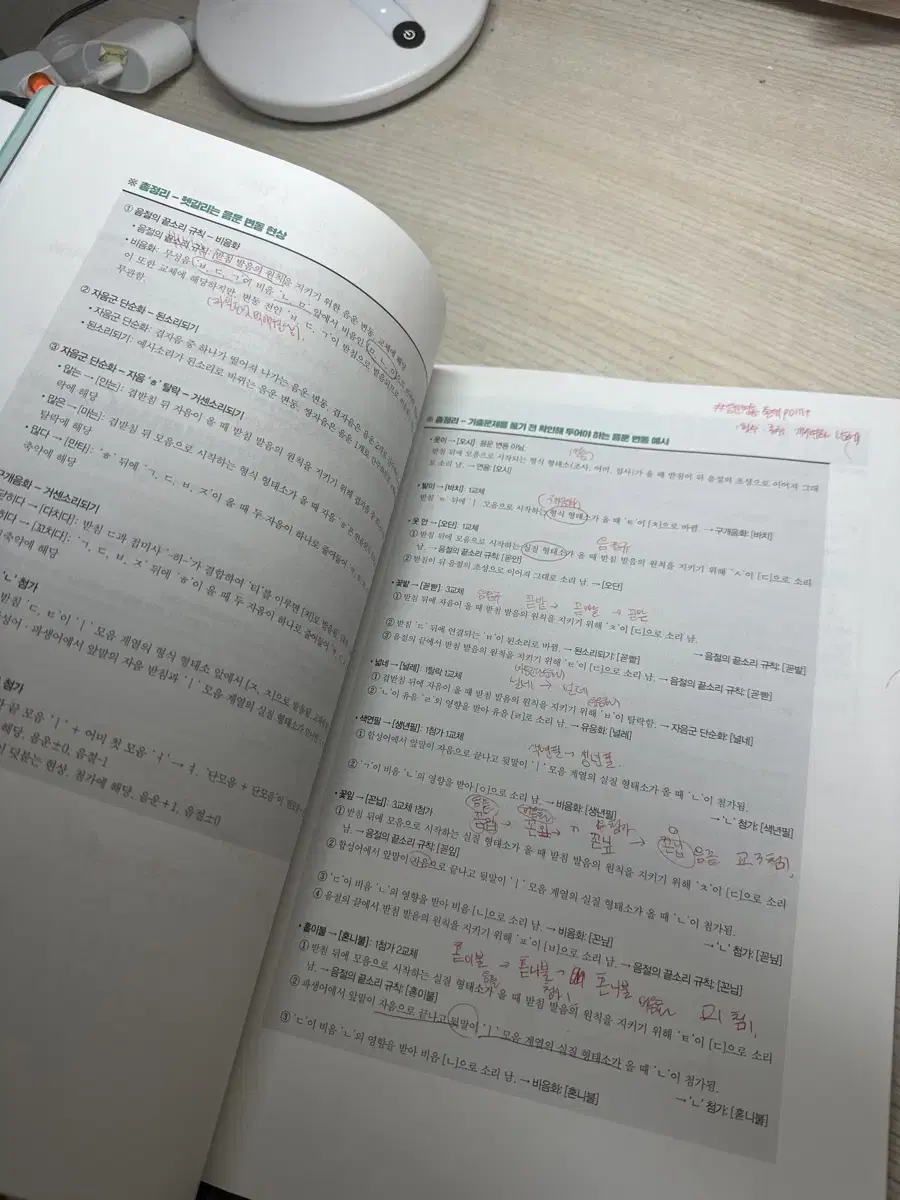 ※ 총정리 – 헷갈리는 음운 변동 현상
① 음절의 끝소리 규칙 – 비음화
• 음절의 끝소리 규칙: 받침 발음의 원칙을 지키기 위한 음운 변동. 교체에 해당
• 비음화: 무성음 'ㅂ, ㄷ, ㄱ'이 비음 'ㄴ, ㅁ' 앞에서 비음인
이 또한 교체에 해당하지만, 변동 전인 'ㅂ, ㄷ, ㄱ'이 받침으로
무관함.
② 자음군 단순화 – 된소리되기
• 자음군 단순화: 겹자음 중 하나가 떨어져 나가는 음운 변동.
• 된소리되기: 예사소리가 된소리로 바뀌는 음운 변동.
③ 자음군 단순화 – 자음 'ㅎ' 탈락 – 거센소리되기
• 않는 → [안는]: 겹받침 뒤 자음이 올 때 받침 발음의 원칙을 지키기 위해
락에 해당
• 많은 → [마는]: 겹받침 뒤 모음으로 시작하는 형식 형태소가 올 때 자음 'ㅎ'은
탈락에 해당
• 많다 → [만타]: 'ㅎ' 뒤에 'ㄱ, ㄷ, ㅂ, ㅈ'이 올 때 두 자음이 하나로 줄어듦.
축약에 해당
구개음화 – 거센소리되기
닫히다 → [다치다]: 받침 ㄷ과 접미사 '-히-'가 결합하여 '티'를 이루면 [치]로 발음됨.
→ [꼬치다]: 'ㄱ, ㄷ, ㅂ, ㅈ' 뒤에 'ㅎ'이 올 때 두 자음이 하나로 줄어듦
축약에 해당
'ㄴ' 첨가
받침 'ㄷ, ㅌ'이 'ㅣ' 모음 계열의 형식 형태소 앞에서 [ㅈ, ㅊ]으로 발음됨.
합성어·파생어에서 앞말의 자음 받침과 'ㅣ' 모음 계열의 실질 형태소가
첨가
끝 모음 'ㅣ' + 어미 첫 모음 'ㅓ' → ㅕ. '단모음 + 단모음'이
해당. 음운±0, 음절-1
덧붙는 현상. 첨가에 해당. 음운+1, 음절±0
※ 총정리 – 기출문제를 풀기 전 확인해 두어야 하는 음운 변동 예시
• 옷이 → [오시]: 음운 변동 아님.
받침 뒤에 모음으로 시작되는 형식 형태소(조사, 어미, 접사)가 올 때 받침이 뒤 음절의 초성으로 이어져 그대
로 소리 남. → 연음: [오시]
• 밭이 → [바치]: 1교체
받침 'ㅌ' 뒤에 'ㅣ' 모음으로 시작하는 형식 형태소가 올 때 'ㅌ'이 [ㅊ]으로 바뀜. → 구개음화: [바치]
• 옷 안 → [오단]: 1교체
음끝규
① 받침 뒤에 모음으로 시작하는 실질 형태소가 올 때 받침 발음의 원칙을 지키기 위해 'ㅅ'이 [ㄷ]으로 소리
남. → 음절의 끝소리 규칙: [옫안]
② 받침이 뒤 음절의 초성으로 이어져 그대로 소리 남. → [오단]
• 꽃밭 → [꼳빧]: 3교체
① 받침 뒤에 자음이 올 때 받침 발음의 원칙을 지키기 위해 'ㅊ'이 [ㄷ]으로 소리 남.
→ 음절의 끝소리 규칙: [꼳밭]
② 받침 'ㄷ' 뒤에 연결되는 'ㅂ'이 된소리로 바뀜. → 된소리되기: [꼳빹]
③ 음절의 끝에서 받침 발음의 원칙을 지키기 위해 'ㅌ'이 [ㄷ]으로 소리 남. → 음절의 끝소리 규칙: [꼳빧]
• 넓네 → [널레]: 1탈락 1교체
넓네 → 널레
① 겹받침 뒤에 자음이 올 때 받침 발음의 원칙을 지키기 위해 'ㅂ'이 탈락함. → 자음군 단순화: [널네]
② 'ㄴ'이 유음 'ㄹ'의 영향을 받아 유음 [ㄹ]로 소리 남. → 유음화: [널레]
• 색연필 → [생년필]: 1첨가 1교체
색년필 → 생년필
① 합성어에서 앞말이 자음으로 끝나고 뒷말이 'ㅣ' 모음 계열의 실질 형태소가 올 때 'ㄴ'이 첨가됨.
→ 'ㄴ' 첨가: [색년필]
② 'ㄱ'이 비음 'ㄴ'의 영향을 받아 [ㅇ]으로 소리 남. → 비음화: [생년필]
• 꽃잎 → [꼰닙]: 3교체 1첨가
① 받침 뒤에 모음으로 시작하는 실질 형태소가 올 때 받침 발음의 원칙을 지키기 위해 'ㅊ'이 [ㄷ]으로 소리
남. → 음절의 끝소리 규칙: [꼳잎]
② 합성어에서 앞말이 자음으로 끝나고 뒷말이 'ㅣ' 모음 계열의 실질 형태소가 올 때 'ㄴ'이 첨가됨.
→ 'ㄴ' 첨가: [꼳닢]
③ 'ㄷ'이 비음 'ㄴ'의 영향을 받아 비음 [ㄴ]으로 소리 남. → 비음화: [꼰닢]
④ 음절의 끝에서 받침 발음의 원칙을 지키기 위해 'ㅍ'이 [ㅂ]으로 소리 남. → 음절의 끝소리 규칙: [꼰닙]
• 홑이불 → [혼니불]: 1첨가 2교체
① 받침 뒤에 모음으로 시작하는 실질 형태소가 올 때 받침 발음의 원칙을 지키기 위해 'ㅌ'이 [ㄷ]으로 소리
남. → 음절의 끝소리 규칙: [혿이불]
② 파생어에서 앞말이 자음으로 끝나고 뒷말이 'ㅣ' 모음 계열의 실질 형태소가 올 때 'ㄴ'이 첨가됨.
→ 'ㄴ' 첨가: [혿니불]
③ 'ㄷ'이 비음 'ㄴ'의 영향을 받아 비음 [ㄴ]으로 소리 남. → 비음화: [혼니불]